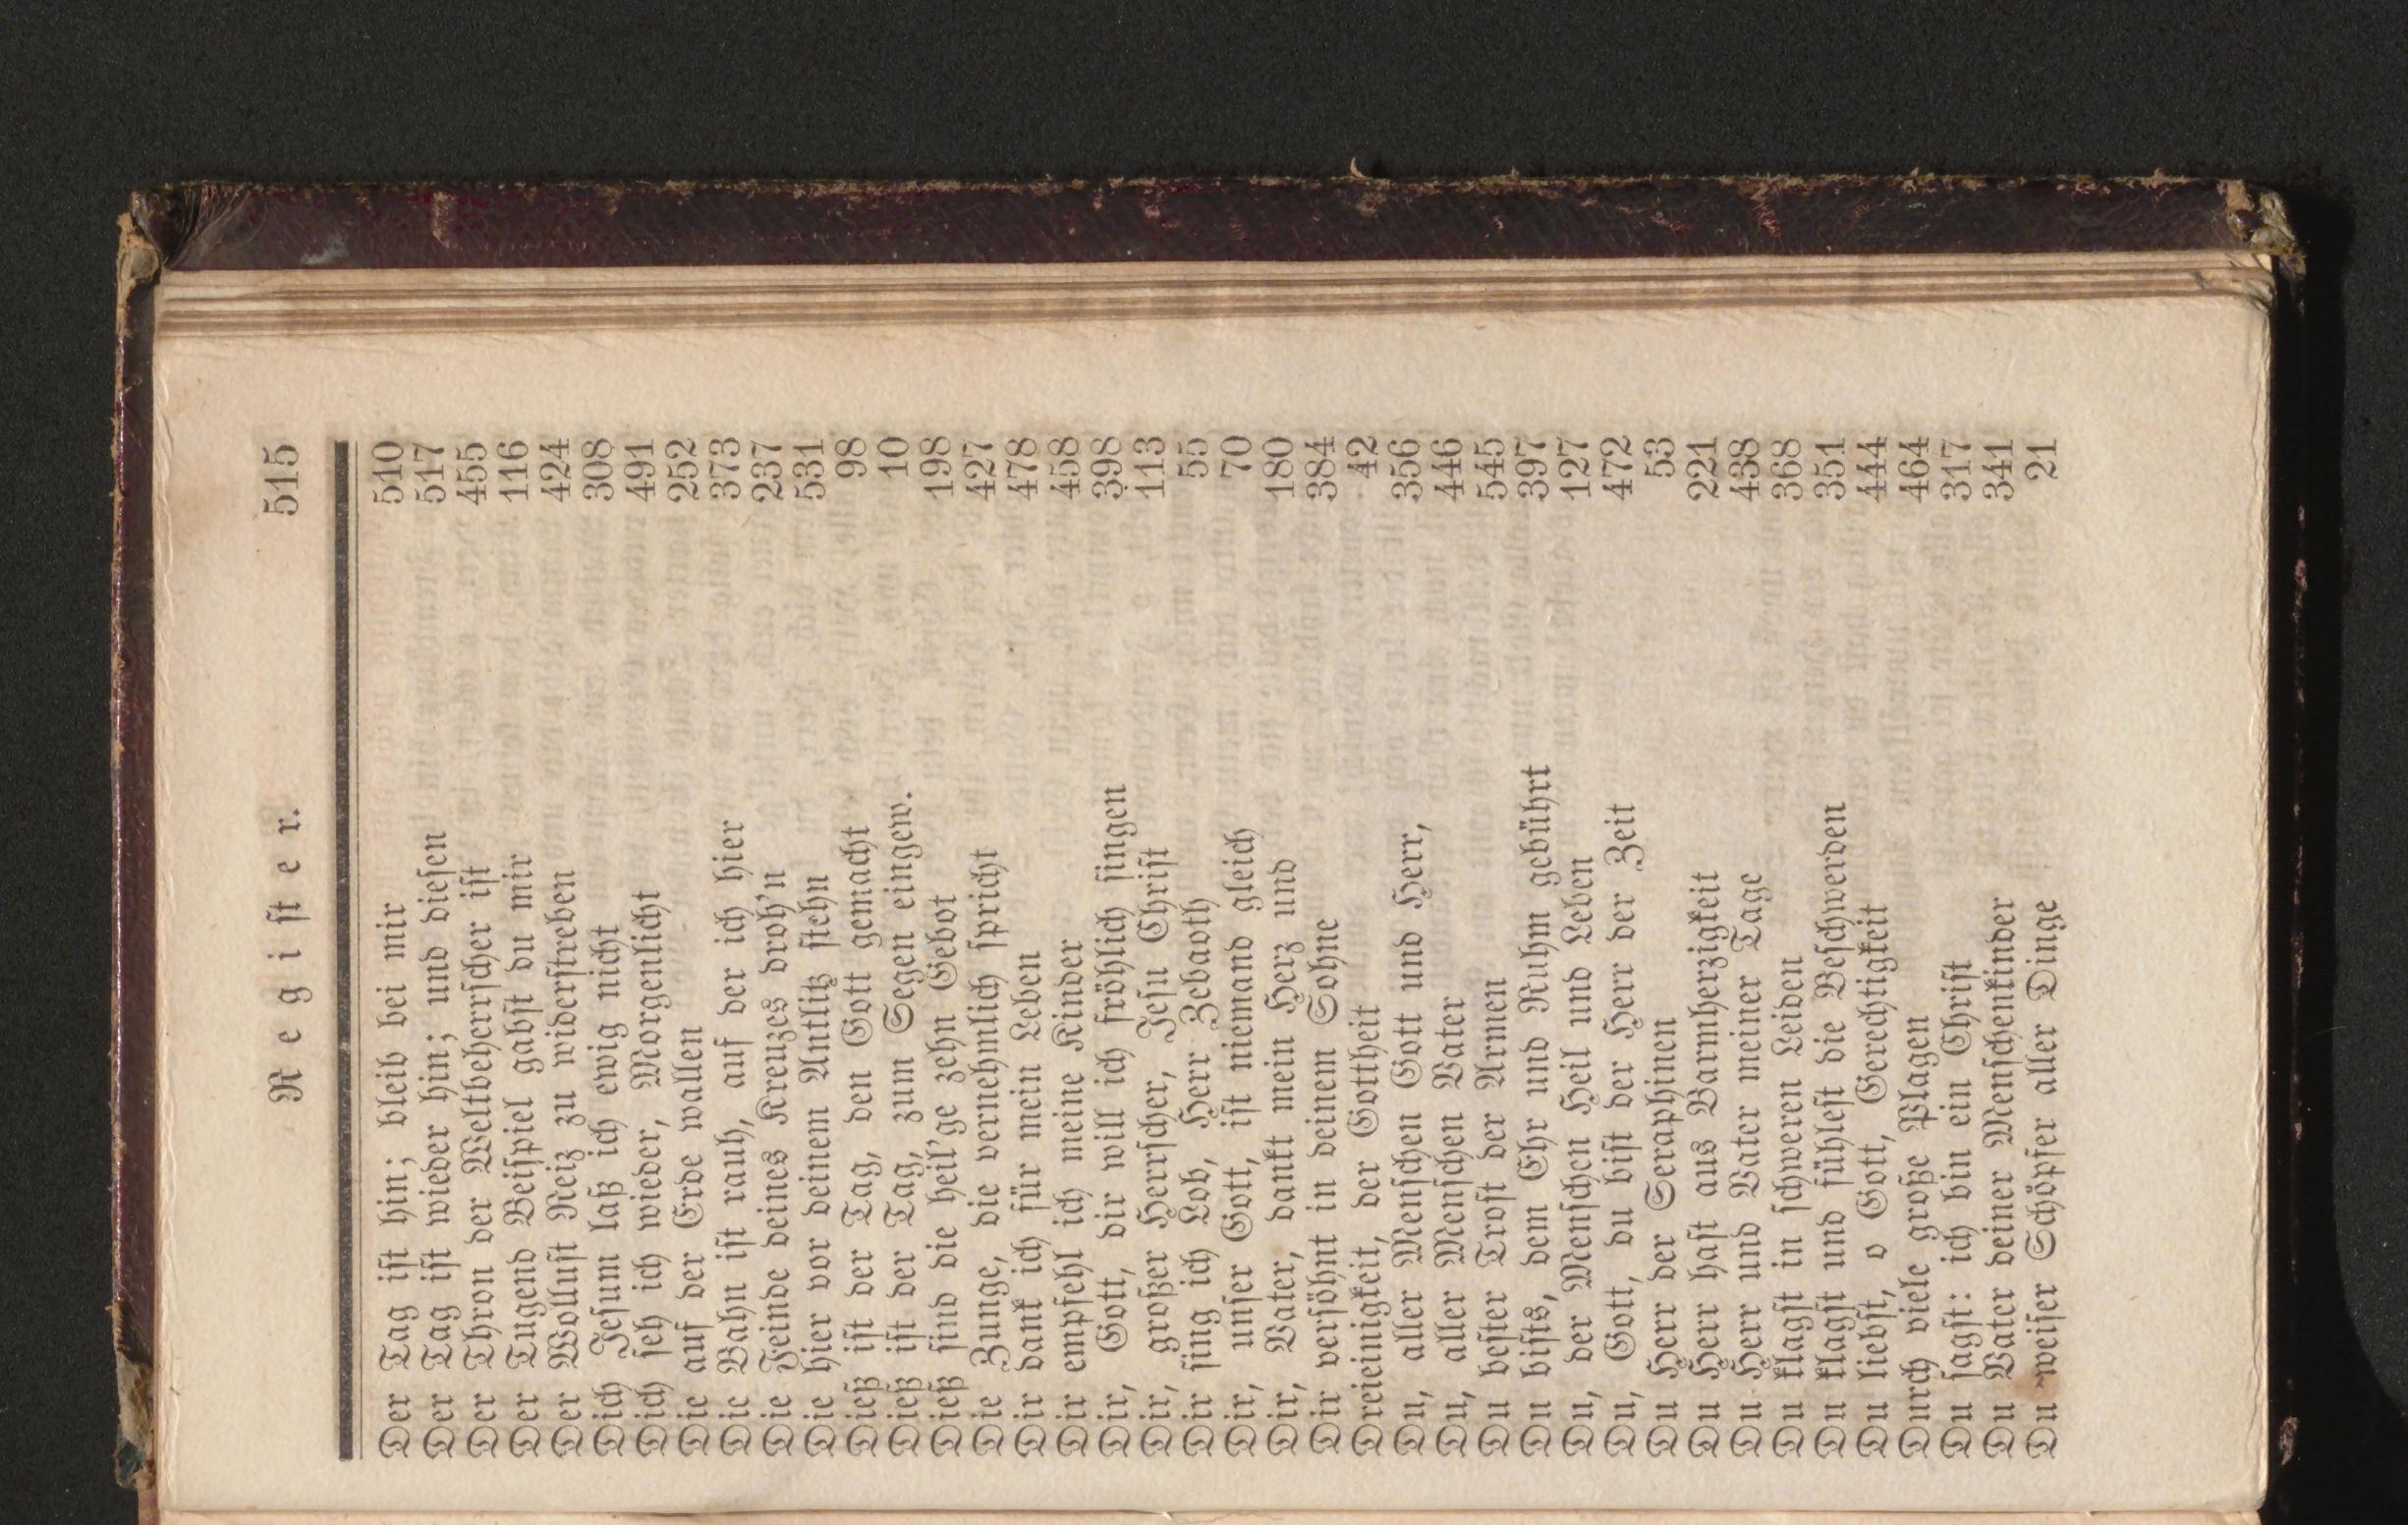 Register. 515
Der Tag ist hin; bleib bei mir 510
Der Tag ist wieder hin; und diesen 517
Der Thron der Weltbeherrscher ist 455
Der Tugend Beispiel gabst du mir 116
Der Wollust Reiz zu widerstreben 424
Dich Jesum laß ich ewig nicht 308
Dich seh ich wieder, Morgenlicht 491
Die auf der Erde wallen 252
Die Bahn ist rauh, auf der ich hier 373
Die Feinde deines Kreuzes droh'n 237
Die hier vor deinem Antlitz stehn 531
Dieß ist der Tag, den Gott gemacht 98
Dieß ist der Tag, zum Segen eingew. 10
Dieß sind die heil'ge zehn Gebot 198
Die Zunge, die vernehmlich spricht 427
Dir dank ich für mein Leben 478
Dir empfehl ich meine Kinder 458
Dir, Gott, dir will ich fröhlich singen 398
Dir, großer Herrscher, Jesu Christ 113
Dir sing ich Lob, Herr Zebaoth 55
Dir, unser Gott, ist niemand gleich 70
Dir, Vater, dankt mein Herz und 180
Dir versöhnt in deinem Sohne 384
Dreieinigkeit, der Gottheit 42
Du, aller Menschen Gott und Herr, 356
Du, aller Menschen Vater 446
Du bester Trost der Armen 545
Du bists, dem Ehr und Ruhm gebührt 397
Du, der Menschen Heil und Leben 127
Du, Gott, du bist der Herr der Zeit 472
Du Herr der Seraphinen 53
Du Herr hast aus Barmherzigkeit 221
Du Herr und Vater meiner Tage 438
Du klagst in schweren Leiden 368
Du klagst und fühlest die Beschwerden 351
Du liebst, o Gott, Gerechtigkeit 444
Durch viele große Plagen 464
Du sagst: ich bin ein Christ 317
Du Vater deiner Menschenkinder 341
Du weiser Schöpfer aller Dinge 21